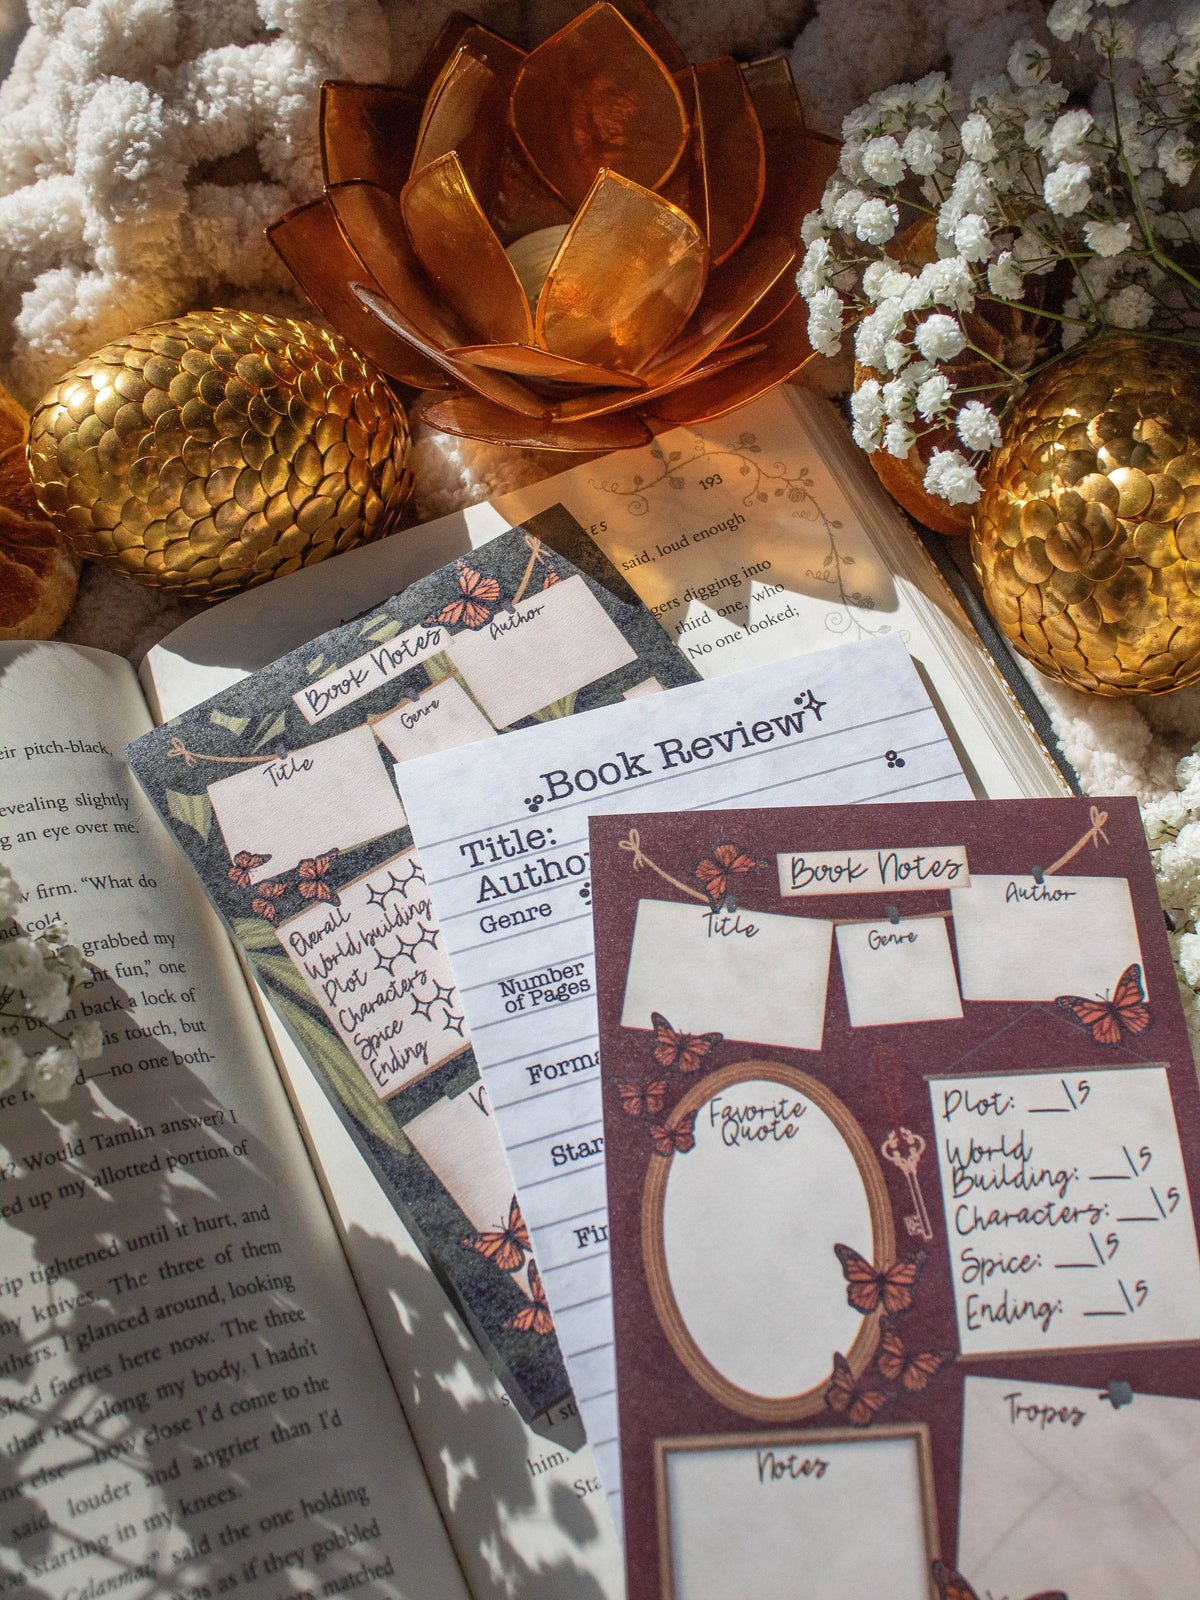 193
said, loud enough
gers digging into
third one, who
No one looked;
Book Notes
Author
Genre
Title
Overall
World building
Plot
Characters
Spice
Ending
Book Review
Title:
Autho
Genre
Number
of Pages
Forma
Star
Fi
Book Notes
Title
Genre
Author
Favorite
Quote
Plot: __\5
World
Building: __\5
Characters: __\5
Spice: __\5
Ending: __\5
Tropes
Notes
eir pitch-black,
evealing slightly
g an eye over me.
w firm. “What do
nd cold.
grabbed my
ht fun,” one
back a lock of
is touch, but
d—no one both-
r? Would Tamlin answer? I
ed up my allotted portion of
rip tightened until it hurt, and
my knives. The three of them
others. I glanced around, looking
sked faeries here now. The three
that ran along my body. I hadn’t
one else—how close I’d come to the
said, louder and angrier than I’d
was starting in my knees.
Calanmai,” said the one holding
was as if they gobbled
matched
I st
him.
Sta